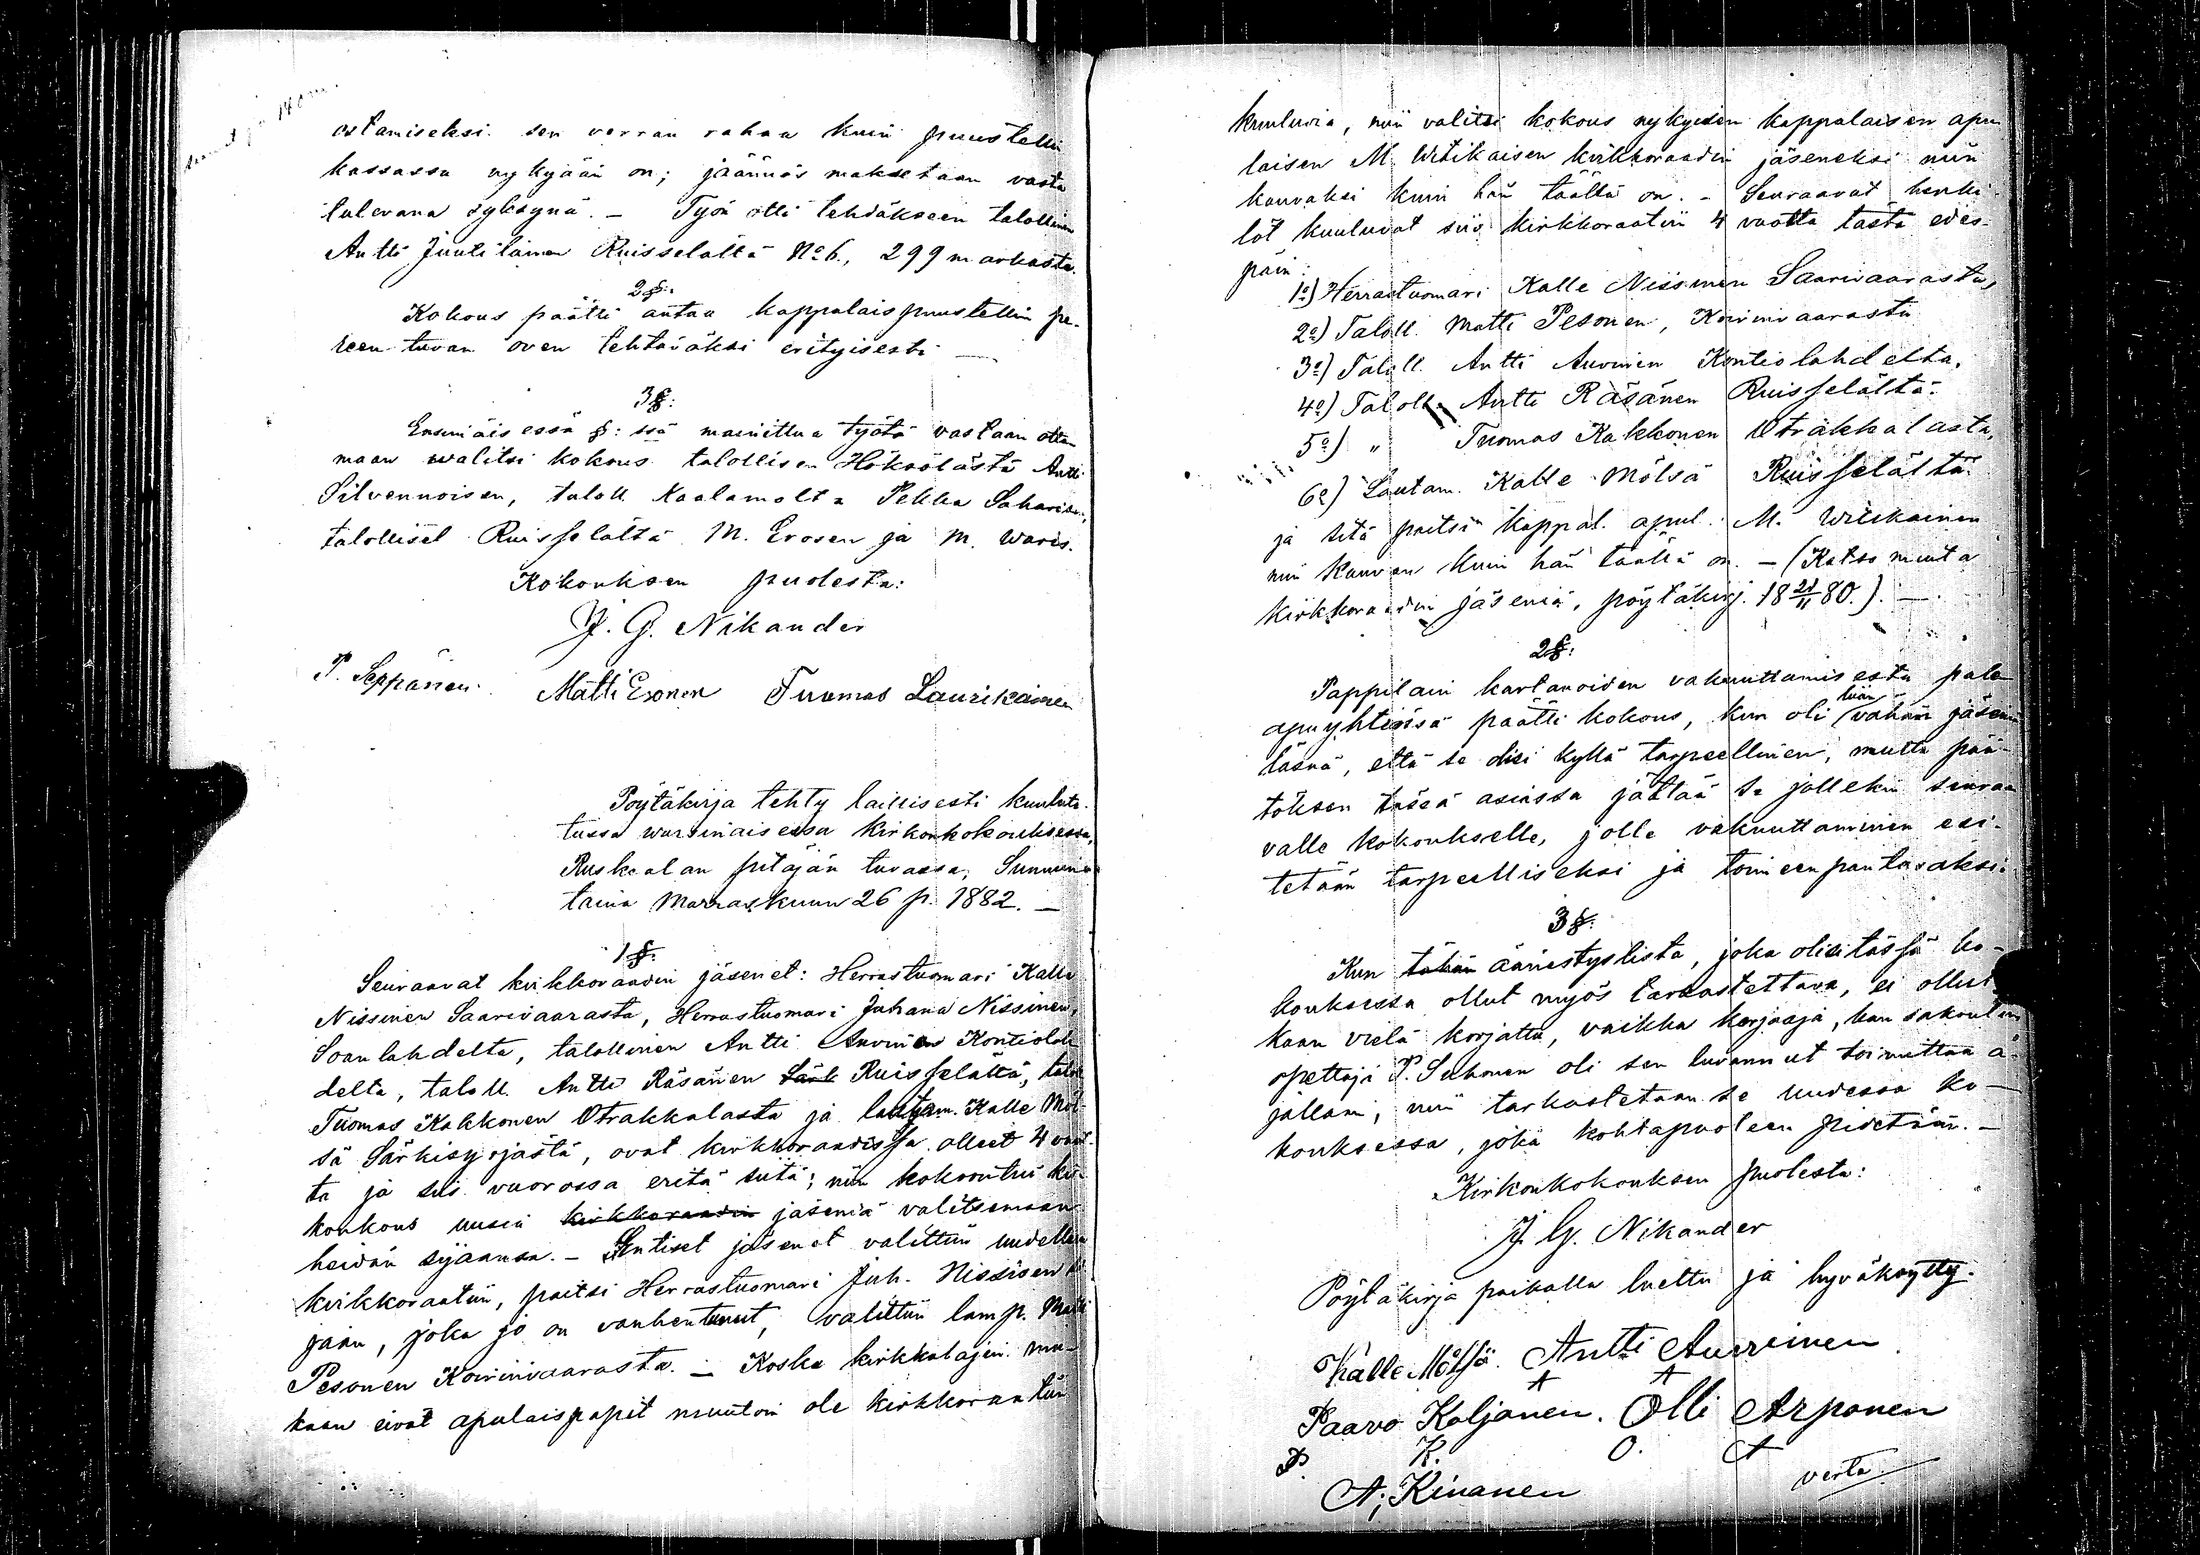 ostamiseksi sen verran rahaa kuin puustellin
kassassa nykyään on; jäännös maksetaan vasta
tulevana syksynä. — Työn otti tehdäkseen talollinen
Antti Juutilainen Ruisselältä No 6, 299 markasta.
2 §:
Kokous päätti antaa kappalaispuustellin pe-
reen tuvan oven tehtäväksi erityisesti —
3 §:
Ensimäisessä §:ssä mainittua työtä vastaan otta
maan walitsi kokous talollisen Höksölästä Antti
Silvennoisen, taloll. Kaalamolta Pekka Saharisen,
talolliset Ruisselältä M. Erosen ja M. Waris.
Kokouksen puolesta:
J. G. Nikander
P. Seppänen. Matti Eronen Tuomas Laurikainen
Pöytäkirja tehty laillisesti kuulute-
tussa warsinaisessa kirkonkokouksessa,
Ruskealan pitäjän tuvassa, Sunnun-
taina Marraskuun 26 p. 1882. —
1 §:
Seuraavat kirkkoraadin jäsenet: Herrastuomari Kalle
Nissinen Saarivaarasta, Herrastuomari Juhana Nissinen,
Soanlahdelta, talollinen Antti Auvinen Kontiolah
delta, taloll. Antti Räsänen Särk Ruisselältä, talol
Tuomas Kakkonen Otrakkalasta ja lautam. Kalle Möl-
sä Särkisyrjästä, ovat kirkkoraadissa olleet 4 vuot-
ta ja siis vuorossa eritä siitä; niin kokoontui kir-
konkous uusia kirkkoraadin jäseniä valitsemaan
heidän sijaansa. — Entiset jäsenet valittiin uudellen
kirkkoraatiin, paitsi Herrastuomari Juh. Nissisen si
jaan, joka jo on vanhentunut, valittiin lamp. Matti
Pesonen Koirinvaarasta. — Koska kirkkolajin mu-
kaan eivät apulaispapit muutoin ole kirkkoraatiin
kuuluvia, niin valitsi kokous nykyisen kappalaisen apu
laisen M. Witikaisen kirkkoraadin jäseneksi niin
kauvaksi kuin hän täällä on. — Seuraavat henki
löt kuuluvat siis kirkkoraatiin 4 vuotta tästä edes-
päin:
1o) Herrastuomari Kalle Nissinen Saarivaarasta,
2o) Taloll. Matti Pesonen, Koirinvaarasta
3o) Taloll. Antti Auvinen Kontiolahdelta,
4o) Taloll. Antti Räsänen Ruisselältä.
5o) " Tuomas Kakkonen Otrakkalasta,
6o) Lautam. Kalle Mölsä Ruisselältä.
ja sitä paitsi kappal. apul. M. Witikainen
niin kauvan kuin hän täällä on. — (Katso muita
kirkkoraadin jäseniä, pöytäkirj. 18 21/11 80.). —
2 §:
Pappilain kartanoiden vakuuttamisesta palo
apuyhtiössä päätti kokous, kun oli liian vähän jäseniä
läsnä, että se olisi kyllä tarpeellinen, mutta pää-
töksen tässä asiassa jättää se jollekin seuraa
valle kokoukselle, jolle vakuuttaminen esi-
tetään tarpeelliseksi ja toimeenpantavaksi.
3 §:
Kun tähän äänestyslista, joka olisi tässä ko-
kouksessa ollut myös tarkastettava, ei ollut
kaan vielä korjattu, vaikka korjaaja, kansakoulun
opettaja P. Suhonen oli sen luvannut toimittaa a-
jallani, niin tarkastetaan se uudessa ko-
kouksessa, joka kohtapuoleen pidetään. —
Kirkonkokouksen puolesta:
J. G. Nikander
Pöytäkirja paikalla luettu ja hyväksytty.
Kalle Mölsä. Antti Auvinen
A A
Paavo Koljonen. Olli Arponen
P. K. O. A
A; Kinanen
verta